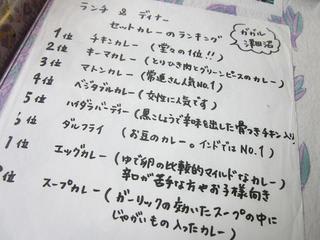 ランチ & ディナー
セットカレーのランキング
ガガル 津田沼
1位 チキンカレー (堂々の1位!!)
2位 キーマカレー (とりひき肉とグリーンピースのカレー)
3位 マトンカレー (常連さん人気NO.1)
4位 ベジタブルカレー (女性に人気です)
5位 ハイダラバーディー (黒こしょうで辛味を出した骨つきチキン入り)
6位 ダルフライ (お豆のカレー。インドではNO.1)
7位 エッグカレー (ゆで卵の比較的マイルドなカレー
辛口が苦手な方やお子様向き
位 スープカレー (ガーリックの効いたスープの中に
じゃがいも入ったカレー)